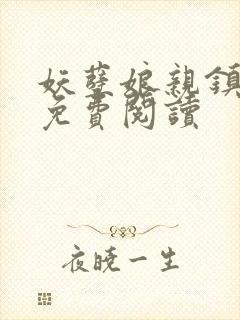 妖孽娘親鎮
免費閱讀
夜曉一生